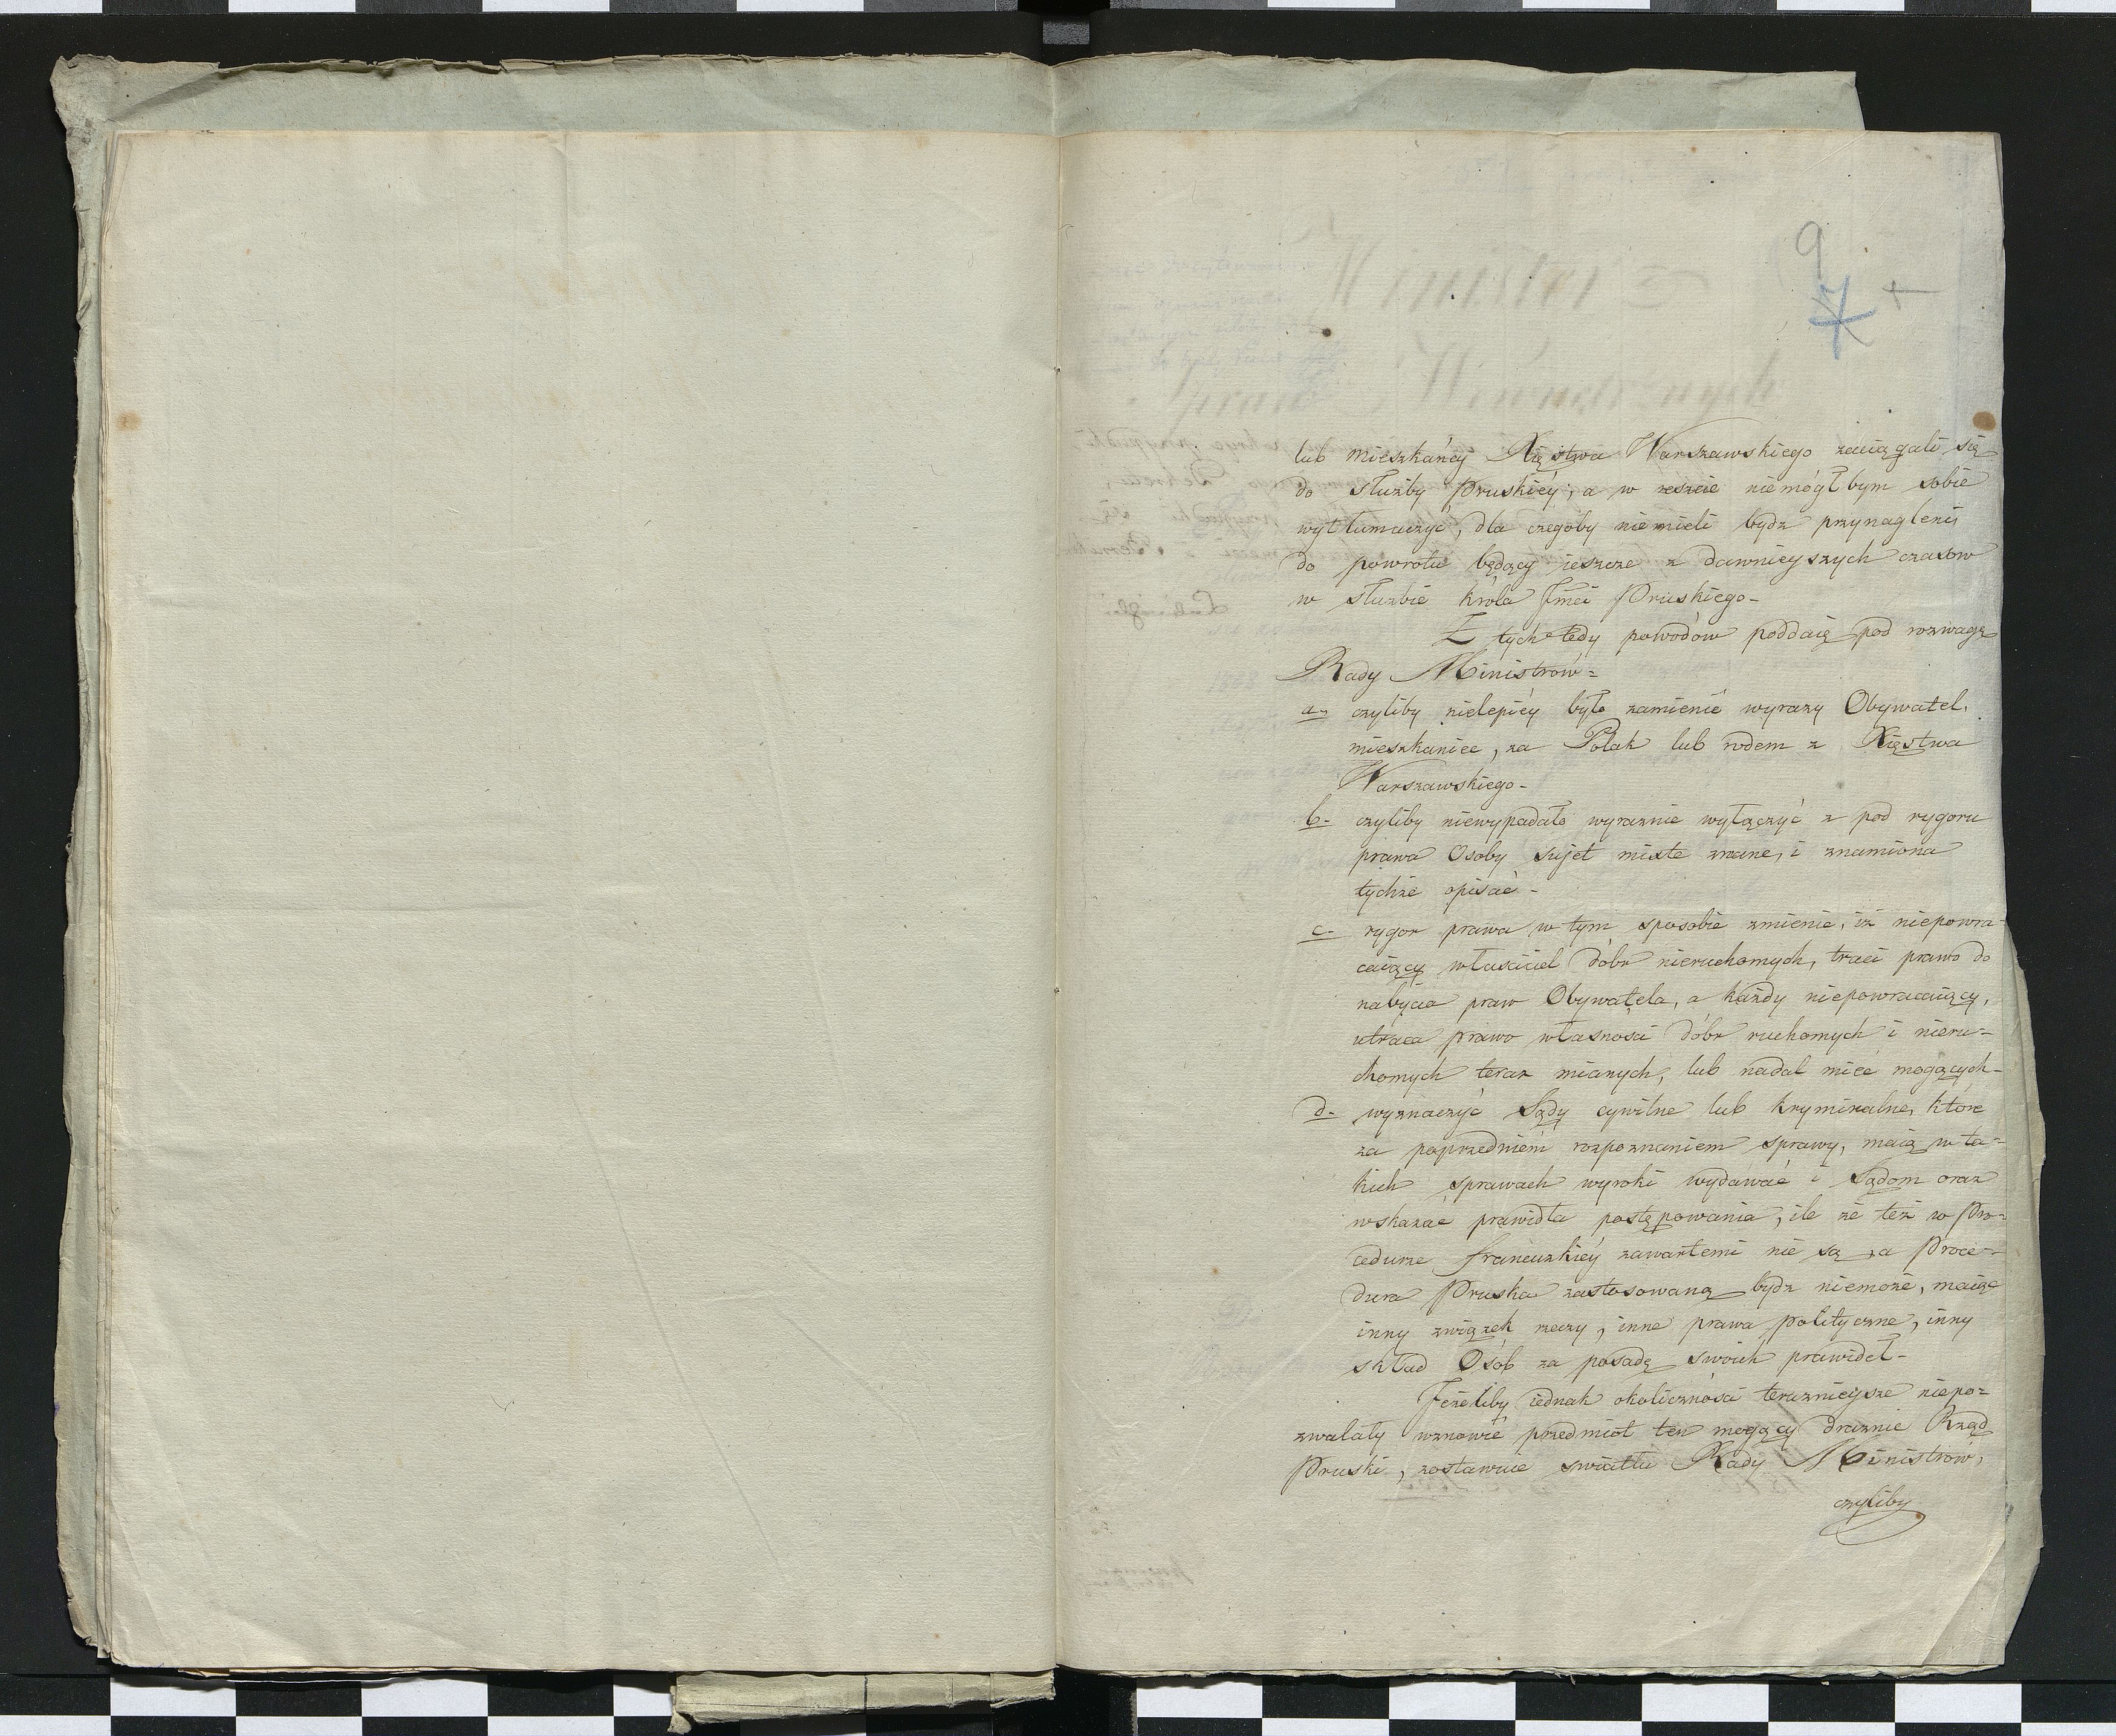 9
7
lub mieszkańcy Xięstwa Warszawskiego zaciągali się
do służby Pruskiéy, a w reszcie niemógłbym sobie
wytłumaczyć, dla czegoby niemieli bydz przynagleni
do powrotu będący ieszcze z dawnieyszych czasow
w służbie Króla Jmci Pruskiego-
Z tych tedy powodów poddaię pod rozwagę
Rady Ministrów-
a- czyliby nielepiéy było zamienić wyrazy Obywatel,
mieszkaniec, za Polak lub rodem z Xięstwa
Warszawskiego-
b- czyliby niewypadało wyraznie wyłączyć z pod rygoru
prawa Osoby sujet mixte zwane, i znamiona
tychże opisać-
c- rygor prawa w tym sposobie zmienić, iż niepowra-
caiący właściciel dóbr nieruchomych, traci prawo do
nabycia praw Obywatela, a każdy niepowracaiący,
utraca prawo własnosci dóbr ruchomych i nieru-
chomych teraz mianych, lub nadal mieć mogących-
d- wyznaczyć Sądy cywilne lub kryminalne, które
za poprzedniem rozpoznaniem sprawy, maią w ta-
kich sprawach wyroki wydawać i Sądom oraz
wskazać prawidła postępowania, ile że też w Pro-
cedurze francuzkiéy zawartemi nie są, a Proce-
dura Pruska zastosowaną bydz niemoże, maiąc
inny związek rzeczy, inne prawa polityczne, inny
skład Osób za posadę swoich prawideł-
Jeżeliby iednak okolicznosci teraznieysze niepo-
zwalały wznowić przedmiot ten mogący draznic Rząd
Pruski, zostawuię swiatłu Rady Ministrów,
czyliby